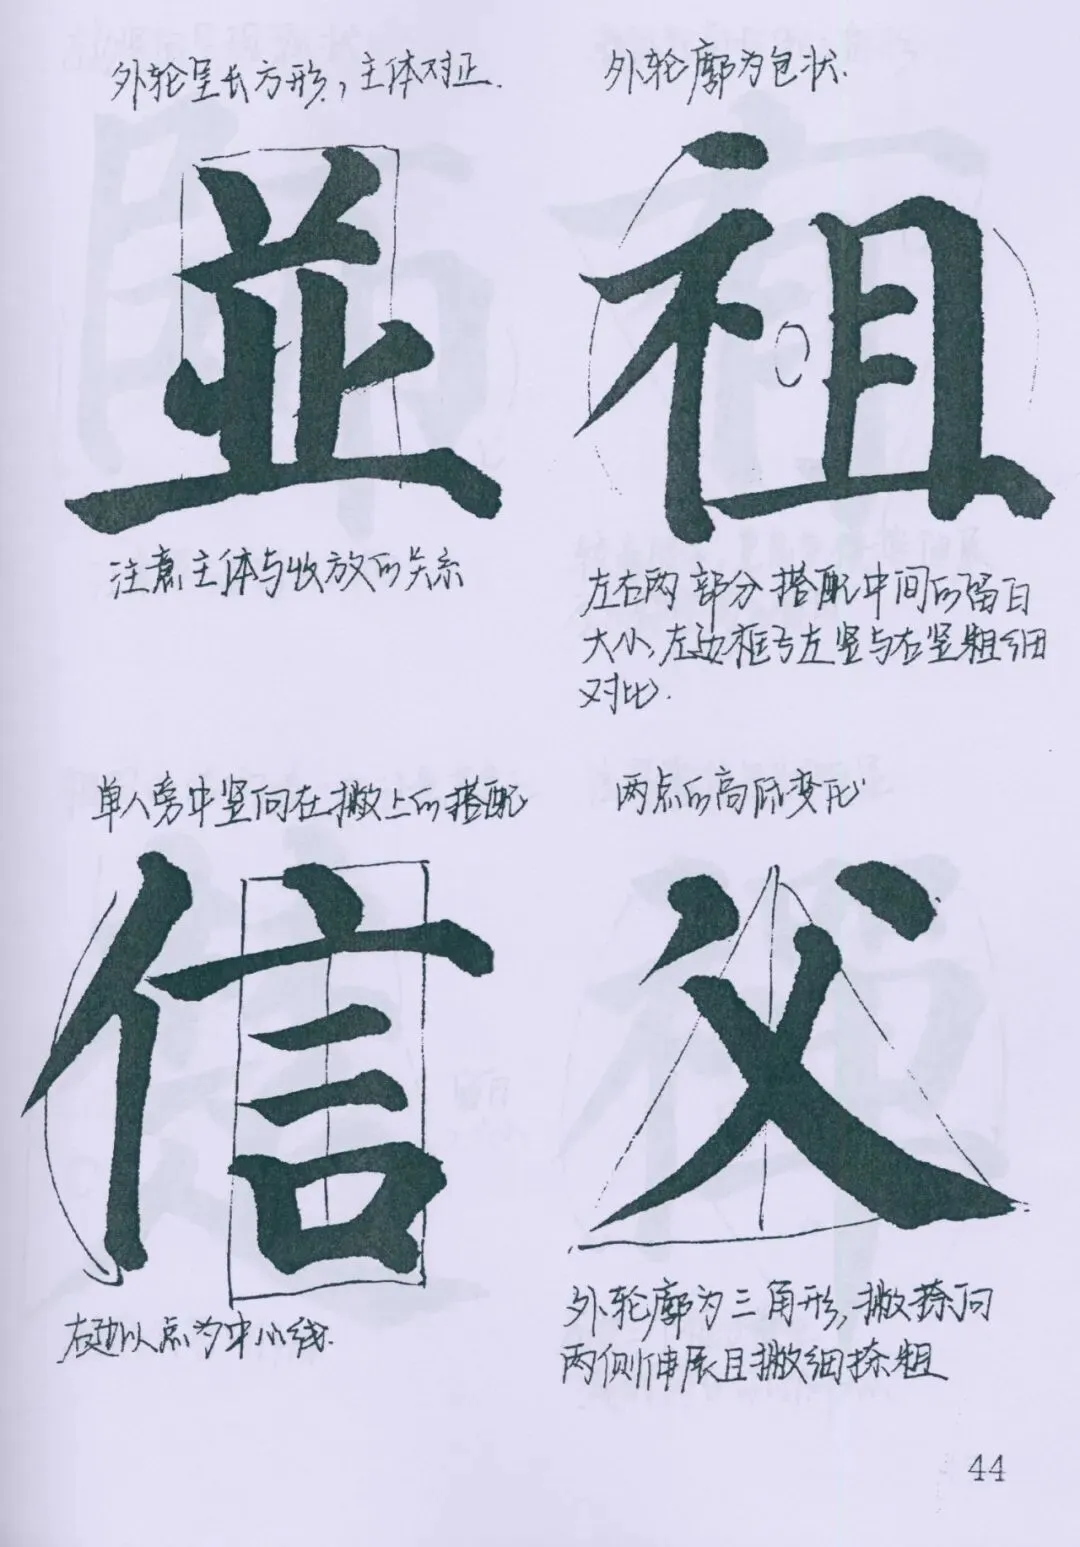 外轮呈长方形，主体对正.
並
注意主体与收放的关系
外轮廓为包状.
祖
左右两部分搭配中间的留白
大小，左边框与左竖与右竖粗细
对比.
单人旁中竖向在撇上的搭配
信
右边以点为中心线.
两点的高低变形
父
外轮廓为三角形，撇捺向
两侧伸展且撇细捺粗
44